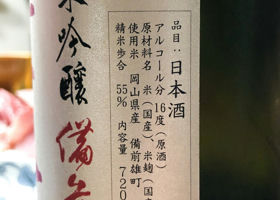 品目:日本酒
アルコール分 16度(原酒)
原材料名 米(国産)、米麹(国産
使用米 岡山県産 備前雄町
精米歩合 55% 内容量 720
米吟醸
備前